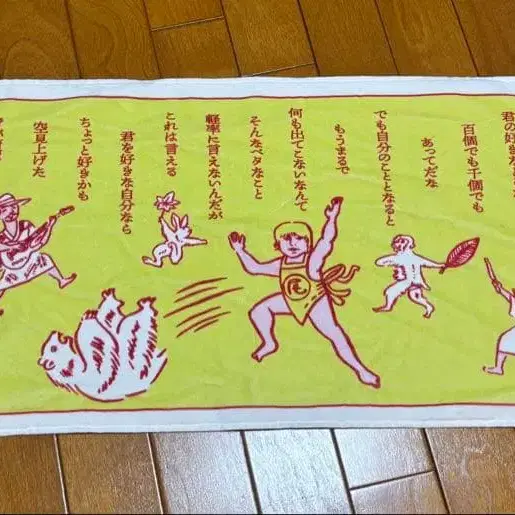 君の好きなと
百個でも千個でも
あってだな
でも自分のこととなると
もうまるで
何も出てこないなんて
そんなベタなこと
軽率に言えないんだが
これは言える
君を好きな自分なら
ちょっと好きかも
空見上げた